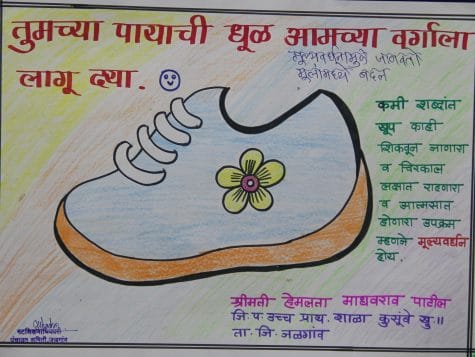 तुमच्या पायाची धूळ आमच्या वर्गाला
लागू द्या.
मूल्यवर्धनामुळे जाणवतो
मुलांमध्ये बदल
कमी शब्दांत
खूप काही
शिकवून जाणारा
व चिरकाल
लक्षात राहणारा
व आत्मसात
होणारा उपक्रम
म्हणजे मूल्यवर्धन
होय.
श्रीमती हेमलता माधवराव पाटील
जि.प.उच्च प्राथ. शाळा कुसूंबे खु॥
ता. जि. जळगांव